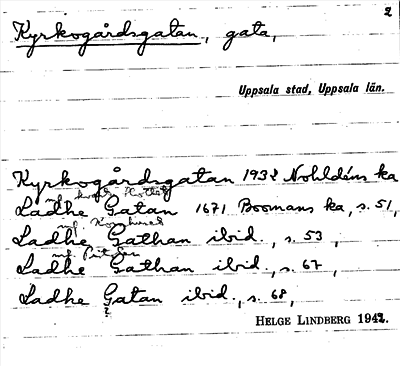 2
Kyrkogårdsgatan, gata,
Uppsala stad, Uppsala län.
Kyrkogårdsgatan 1932 Nohldéns ka
Ladhe Gatan 1671 Boomans ka, s. 51,
Ladhe Gathan ibid., s. 53,
Ladhe Gathan ibid., s. 67,
Ladhe Gatan ibid., s. 68,
?
HELGE LINDBERG 1942.